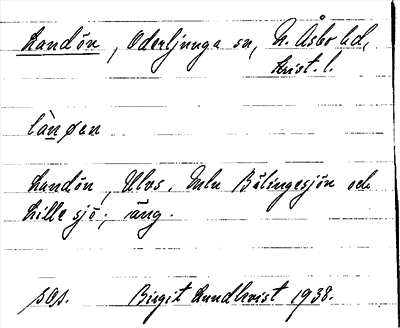 Landön, Oderljunga sn, N. Åsbo hd,
Krist. l.
làn øen
Landön, Ulvs. Mln Bälingesjön och
Lille sjö; äng.
sOs. Birgit Lundkvist 1938.